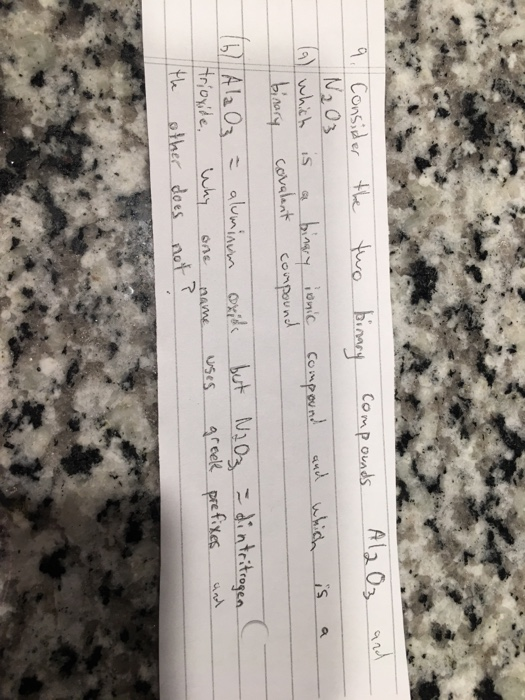 9. Consider the two binary compounds Al2O3 and
N2O3
(a) which is a binary ionic compound and which is a
binary covalent compound
(b) Al2O3 = aluminum oxide but N2O3 = dintritrogen
trioxide. Why one name uses greek prefixes and
the other does not?